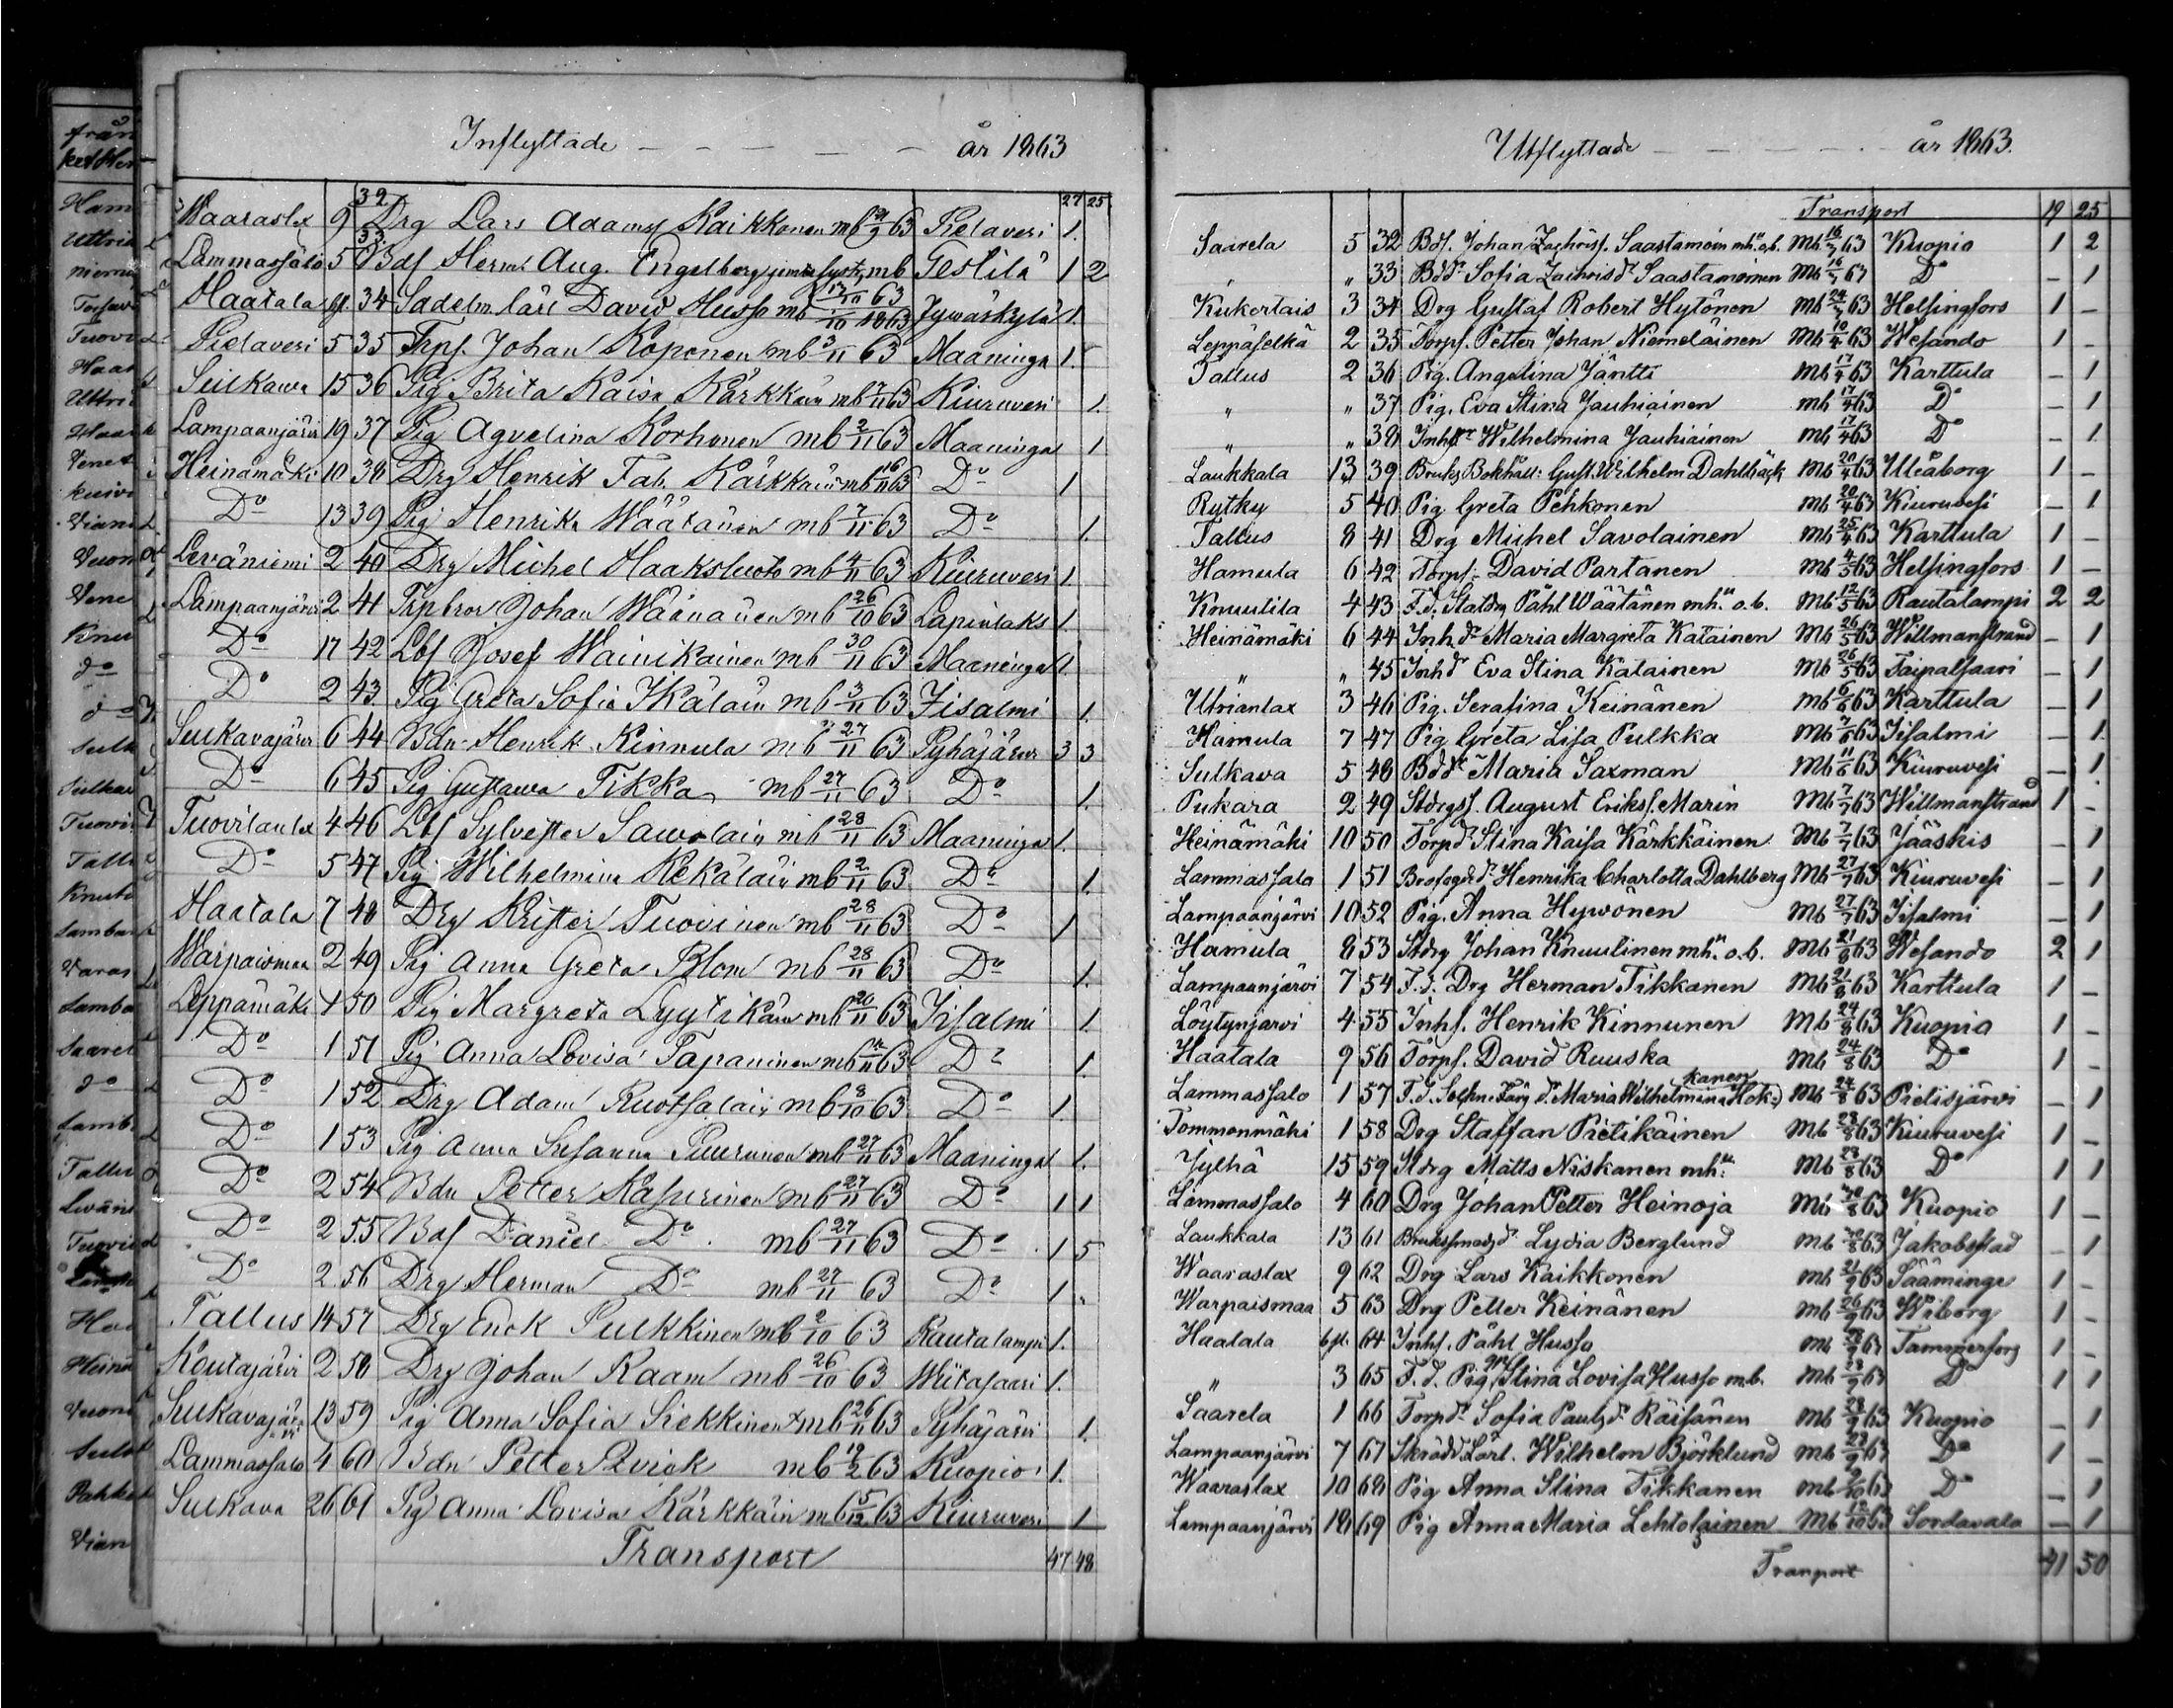 Inflyttade år 1863
27 25
Waaraslx 9 32 Drg Lars Adamsf Kaikkonen mb 21/9 63 Pielavesi 1.
Lammassalo 5 33. Bdf Herm: Aug. Engelberg jemte syst: mb 17/10 63 1 2
Haatala 6f. 34 Sadelm lärl David Husso mb 1863 Jywäskylä 1.
Pielavesi 5 35 Trpf. Johan Koponen mb 3/11 63 Maaninga 1.
Sulkawa 15 36 Pig Brita Kaisa Kärkkäin mb 7/11 63 Kiuruvesi 1.
Lampaanjärvi 19 37 Pig Agvelina Korhonen mb 2/11 63 Maaninga 1
Heinämäki 10 38 Drg Henrik Fab. Kärkkäin mb 16/11 63 Do 1
Do 13 39 Pig Henrika Wäätänen mb 7/11 63 Do 1.
Leväniemi 2 40 Drg Michel Haaksluoto mb 4/11 63 Kiuruvesi 1.
Lampaanjärvi 2 41 Trpbror Johan Wäänänen mb 26/10 63 Lapinlaks 1.
Do 17 42 Lbf Josef Wainikainen mb 30/11 63 Maaninga 1.
Do 2 43 Pig Greta Sofia Ikäläin mb 3/11 63 Iisalmi 1.
Sulkavajärvi 6 44 Bdn Henrik Kinnula mb 27/11 63 Pyhäjärvi 3 3
Do 6 45 Pig Gustawa Tikka mb 27/11 63 Do 1.
Tuovilanlx 4 46 Lbf Sylvester Sawolain mb 28/11 63 Maaninga 1.
Do 5 47 Pig Wilhelmina Kekäläin mb 2/11 63 Do 1.
Haatala 7 48 Drg Krister Tuovinen mb 28/11 63 Do 1
Warpaismaa 2 49 Pig Anna Greta Blom mb 28/11 63 Do 1.
Leppämäki 4 50 Pig Margreta Lyytikäin mb 20/11 63 Iisalmi 1.
Do 1 51 Pig Anna Lovisa Tapaninen mb 63 Do 1.
Do 1 52 Drg Adam Ruotsalain mb 8/10 63 Do 1.
Do 1 53 Pig Anna Susanna Puurunen mb 27/11 63 Maaninga 1.
Do 2 54 Bdn Petter Kasurinen mb 27/11 63 Do 1 1
Do 2 55 Bdf Daniel Do mb 27/11 63 Do 1 5
Do 2 56 Drg Herman Do mb 27/11 63 Do 1
Tallus 14 57 Drg Enok Pulkkinen mb 2/10 63 Rautalampi 1.
Koutajärvi 2 58 Drg Johan Raam mb 26/10 63 Wiitasaari 1.
Sulkavajärvi 13 59 Pig Anna Sofia Siekkinen mb 26/11 63 Pyhäjärvi 1.
Lammassalo 4 60 Bdn Petter Qvick mb 19/2 63 Kuopio 1.
Sulkava 26 61 Pig Anna Lovisa Kärkkäin mb 5/12 63 Kiuruvesi 1
Transport 47 48
Utflyttade år 1863.
Transport 19 25
Saarela 5 32 Bdf. Johan Zachrisf. Saastamoin mh. o.b. Mb 16/7 63 Kuopio 1 2
" " 33 Bddr Sofia Zachrisdr Saastamoinen Mb 16/7 63 Do – 1
Kukertais 3 34 Drg Gustaf Robert Hytönen Mb 24/7 63 Helsingfors 1 –
Leppäselkä 2 35 Torpf. Petter Johan Niemeläinen Mb 10/4 63 Wesando 1 –
Tallus 2 36 Pig. Angelina Jäntti Mb 17/4 63 Karttula – 1
" " 37 Pig. Eva Stina Jauhiainen Mb 17/4 63 Do – 1
" " 38 Inhdr Wilhelmina Jauhiainen Mb 17/4 63 Do – 1
Laukkala 13 39 Bruks Bokhåll: Gust. Wilhelm Dahlbäck Mb 20/4 63 Uleåborg 1 –
Rytky 5 40 Pig Greta Pehkonen Mb 20/4 63 Kiuruvesi – 1
Tallus 8 41 Drg Michel Savolainen Mb 25/4 63 Karttula 1 –
Hamula 6 42 Torpf. David Partanen Mb 4/5 63 Helsingfors 1 –
Knuutila 4 43 F.d. Statdrg Påhl Wäätänen mh. o.b. Mb 12/5 63 Rautalampi 2 2
Heinämäki 6 44 Inhdr Maria Margreta Katainen Mb 26/5 63 Willmanstrand – 1
" " 45 Inhdr Eva Stina Katainen Mb 26/5 63 Taipalsaari – 1
Utrianlax 3 46 Pig. Serafina Keinänen Mb 6/6 63 Karttula – 1
Hamula 7 47 Pig Greta Lisa Pulkka Mb 7/6 63 Iisalmi – 1
Sulkava 5 48 Bddr Maria Saxman Mb 11/6 63 Kiuruvesi – 1
Pukara 2 49 Stdrgsf. August Eriksf. Marin Mb 7/7 63 Willmanstrand 1 –
Heinämäki 10 50 Torpdr Stina Kaisa Kärkkäinen Mb 7/7 63 Jääskis – 1
Lammassalo 1 51 Brofogd dr Henrika Charlotta Dahlberg Mb 27/7 63 Kiuruvesi – 1
Lampaanjärvi 10 52 Pig. Anna Hywönen Mb 27/7 63 Iisalmi – 1
Hamula 8 53 Stdrg Johan Knuutinen mh. o.b. Mb 21/8 63 Wesando 2 1
Lampaanjärvi 7 54 F.d. Drg Herman Tikkanen Mb 21/8 63 Karttula 1 –
Löytynjärvi 4 55 Inhf. Henrik Kinnunen Mb 24/8 63 Kuopio 1 –
Haatala 9 56 Torpf. David Ruuska Mb 24/8 63 Do 1 –
Lammassalo 1 57 F.d. Maria Wilhelmina Hok:kanen Mb 24/8 63 Pielisjärvi – 1
Tommonmäki 1 58 Drg Staffan Pietikäinen Mb 28/8 63 Kiuruvesi 1 –
Jylhä 15 59 Stdrg Matts Niskanen mh. Mb 28/8 63 Do 1 1
Lammassalo 4 60 Drg Johan Petter Heinoja Mb 63 Kuopio 1 –
Laukkala 13 61 Lydia Berglund Mb 63 Jakobstad – 1
Waaraslax 9 62 Drg Lars Kaikkonen mb 21/9 63 Sääminge 1 –
Warpaismaa 5 63 Drg Petter Keinänen mb 26/9 63 Wiborg 1 –
Haatala 6fl. 64 Inhf. Påhl Husso mb 28/9 63 Tammerfors 1 –
" 3 65 F.d. Pig. Stina Lovisa Husso m.b. Mb 28/9 63 Do 1 1
Saarela 1 66 Torpdr Sofia Paulsdr Räisänen mb 28/9 63 Kuopio – 1
Lampaanjärvi 7 67 Skrädd. Lärl. Wilhelm Björklund mb 29/9 63 Do 1 –
Waaraslax 10 68 Pig Anna Stina Tikkanen mb 9/10 63 Do – 1
Lampaanjärvi 18 69 Pig Anna Maria Lehtolainen Mb 12/10 63 Sordavala – 1
Tranport 41 50